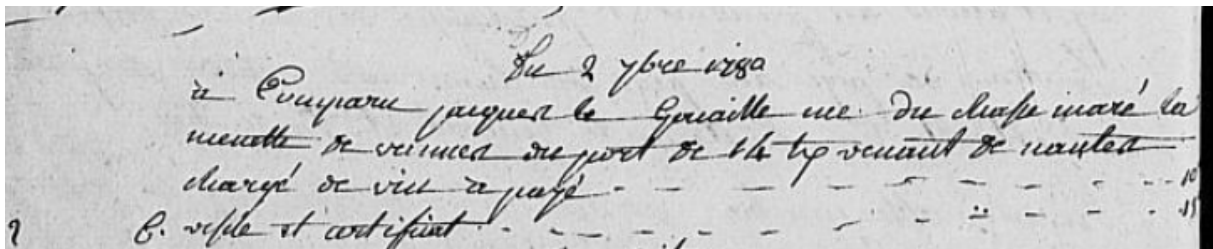 Du 2 7bre 1780
a Comparu jacques le Gouaille me du chasse maré la
mouette de vennes du port de 14 tx venant de nantes
chargé de vin a payé - - - - - - - - 10
2 C. visite et certificat - - - - - - - - 15